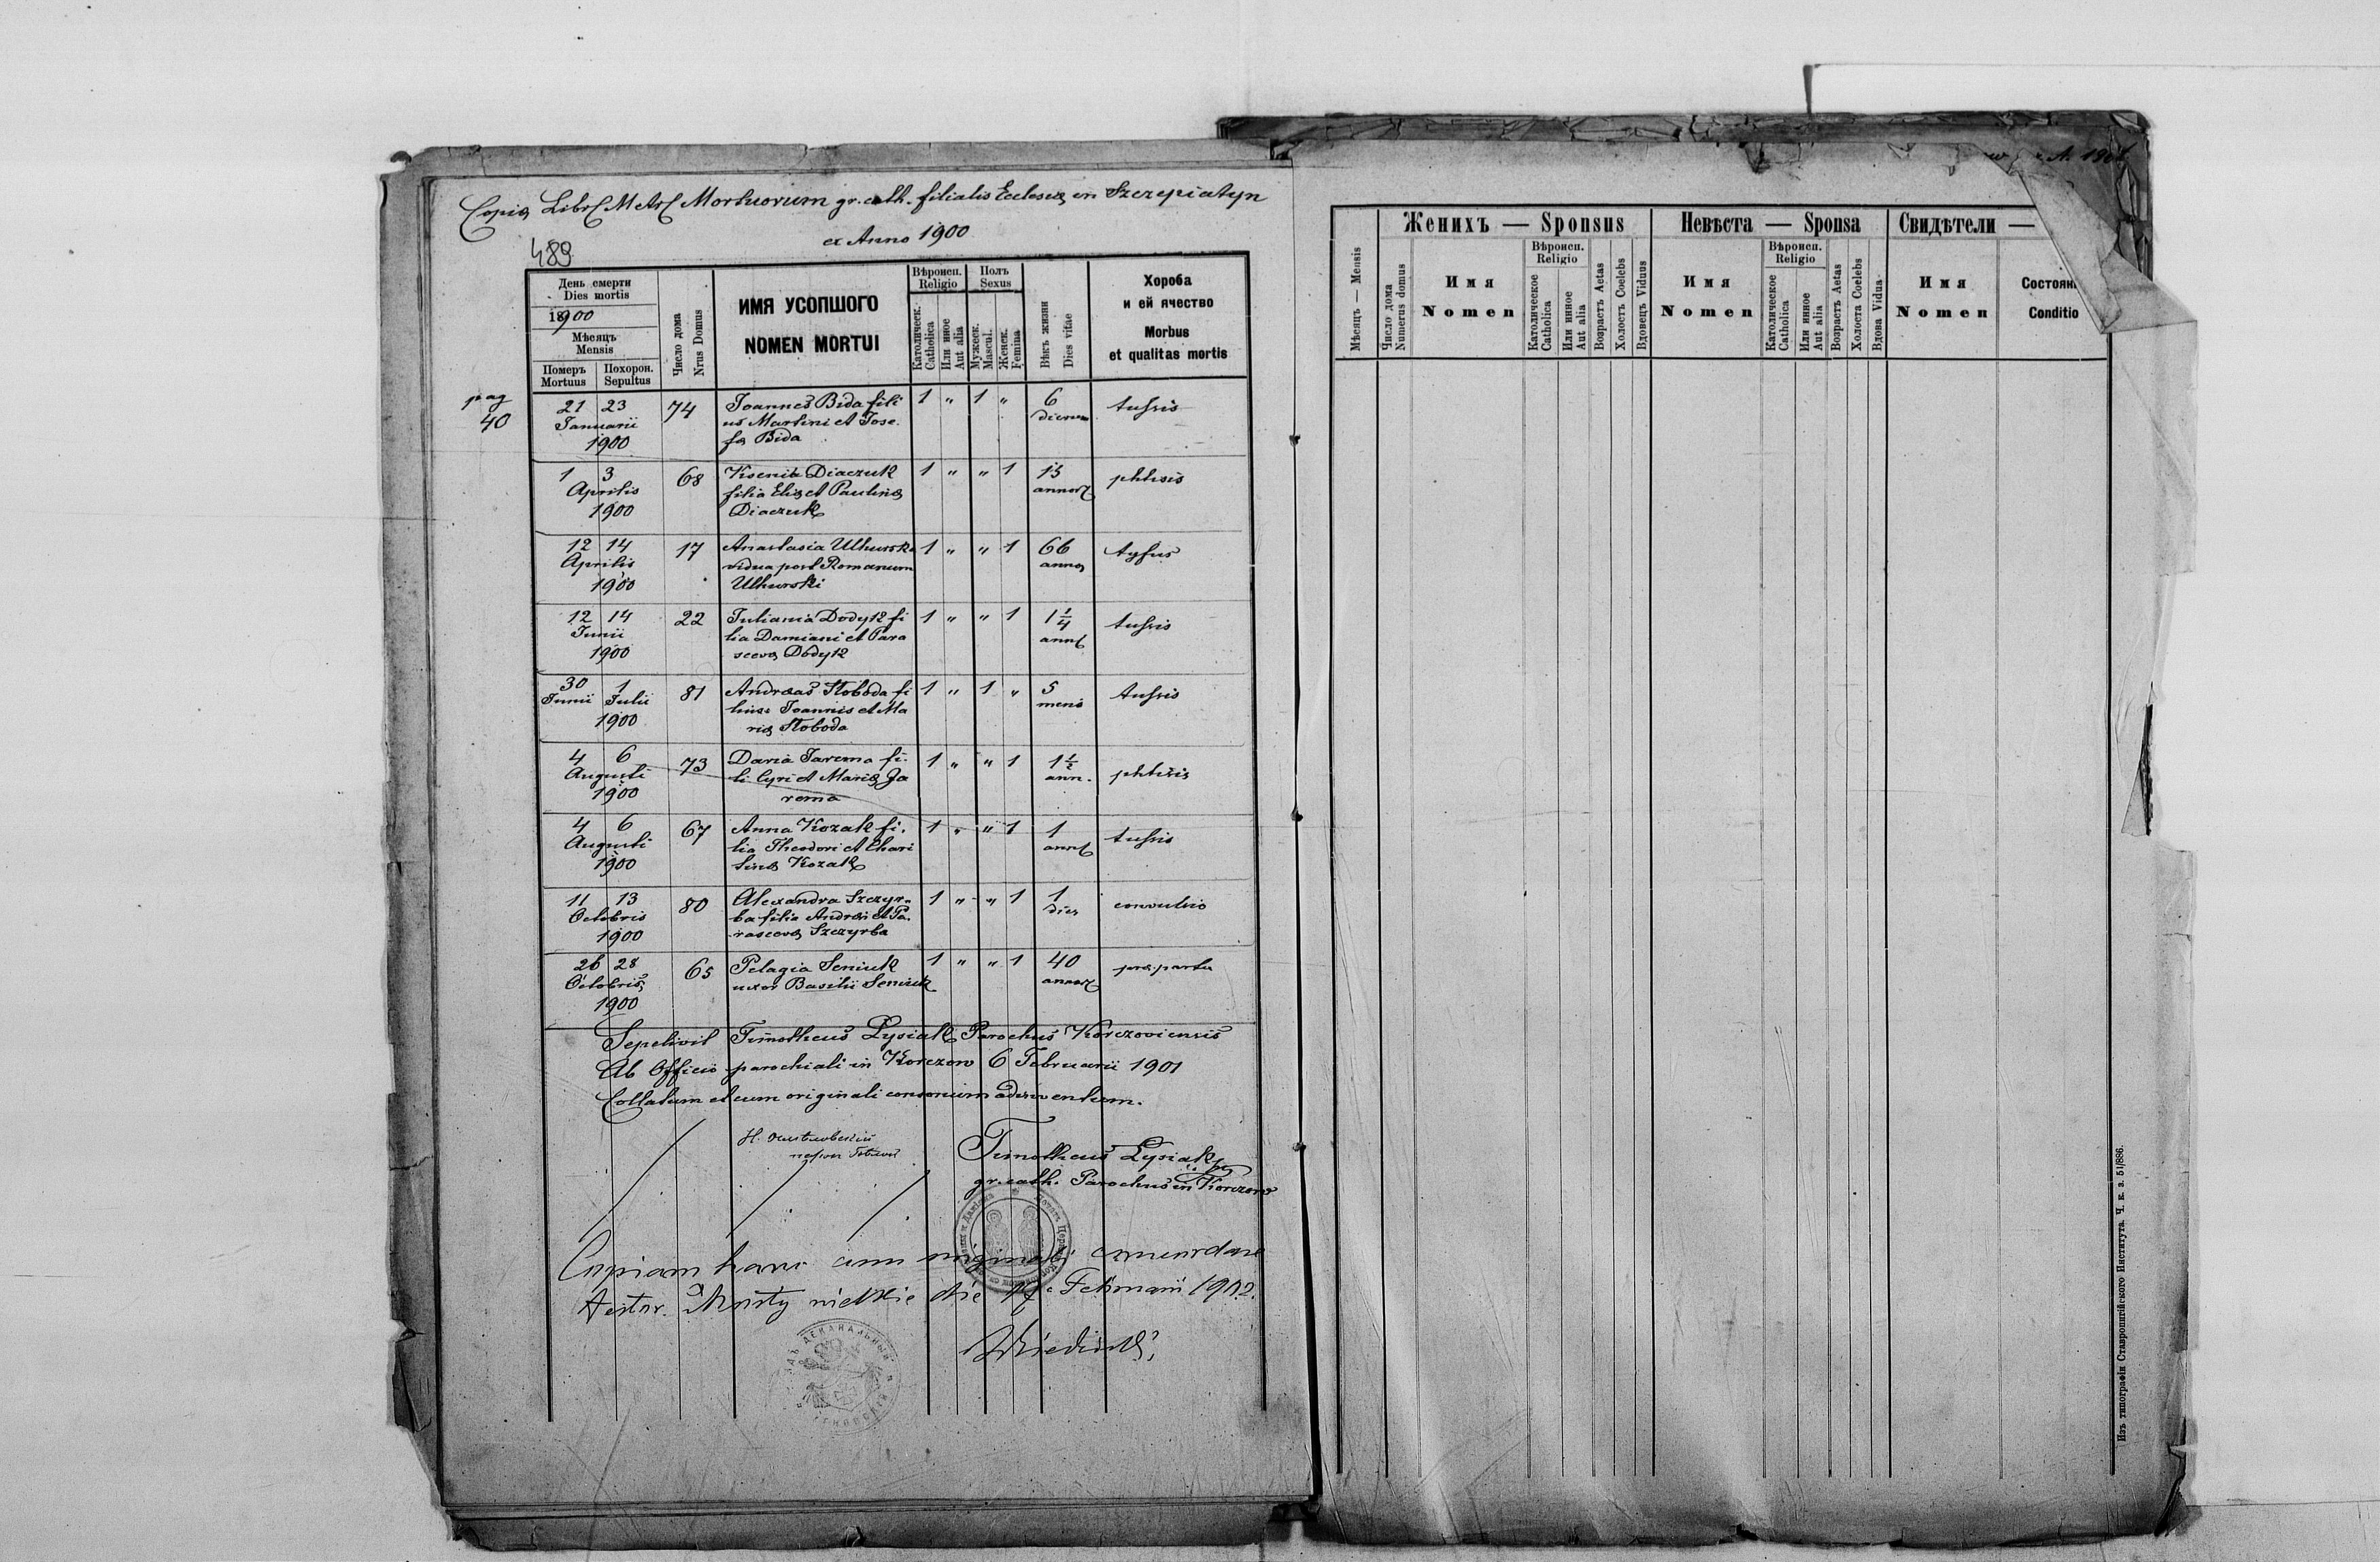 Copia Libri Metr. Mortuorum gr. cath. filialis Ecclesiæ in Szczepiatyn
ex Anno 1900
489
День смерти
Dies mortis
1900
Мѣсяцъ
Mensis
Померъ
Mortuus
Похорон.
Sepultus
Число дома
Nrus Domus
ИМЯ УСОПШОГО
NOMEN MORTUI
Вѣроисп.
Religio
Католическ.
Catholica
Или инное
Aut alia
Полъ
Sexus
Мужеск.
Mascul.
Женск.
Femina
Вѣкъ жизни
Dies vitae
Хороба
и ей ячество
Morbus
et qualitas mortis
pag
40
21 23 74 Joannes Bida fili 1 " 1 " 6 tussis
Januarii us Martini et Jose dierum
1900 fæ Bida
1 3 68 Ksenia Diaczuk 1 " " 1 15 phtisis
Aprilis filia Eliæ et Paulinæ annor
1900 Diaczuk
12 14 17 Anastasia Uhurska 1 " " 1 66 tyfus
Aprilis vidua post Romanum anno
1900 Uhurski
12 14 22 Juliania Dodyk fi 1 " " 1 1 1/4 tussis
Junii lia Damiani et Para anni
1900 scevæ Dodyk
30 1 81 Andreas Sloboda fi 1 " 1 " 5 tussis
Junii Julii lius Joannis et Ma mens
1900 riæ Sloboda
4 6 73 Daria Jarema fi- 1 " " 1 1 1/2 phtisis
Augusti li Cyri et Mariæ Ja ann.
1900 rema
4 6 67 Anna Kozak fi- 1 " " 1 1 tussis
Augusti lia Theodori et Chari anni
1900 tinæ Kozak
11 13 80 Alexandra Szczyr- 1 " " 1 1 convulsio
Octobris ba filia Andreæ et Pa- dies
1900 rascevæ Szczyrba
26 28 65 Pelagia Seniuk 1 " " 1 40 præ partu
Octobris uxor Basilii Seniuk annor
1900
Sepelivit Timotheus Lysiak Parochus Korczoviensis
Ab Officio parochiali in Korczow 6 Februarii 1901
Collatum et cum originali consonum adinventum.
Timotheus Lysiak
gr. cath. Parochus in Korczow
Copiam hanc cum originali concordare
testor. Mosty wielkie die Februarii 1902.
ДЕКАНАЛЬНЫЙ
A. 1901
Мѣсяцъ — Mensis
Число дома
Numerus domus
Женихъ — Sponsus
Имя
Nomen
Вѣроисп.
Religio
Католическое
Catholica
Или инное
Aut alia
Возрастъ Aetas
Холостъ Coelebs
Вдовецъ Viduus
Невѣста — Sponsa
Имя
Nomen
Вѣроисп.
Religio
Католическое
Catholica
Или инное
Aut alia
Возрастъ Aetas
Холоста Coelebs
Вдова Vidua
Свидѣтели —
Имя
Nomen
Состоян
Conditio
Изъ типографіи Ставропигійского Института. Ч. к. з. 51/886.